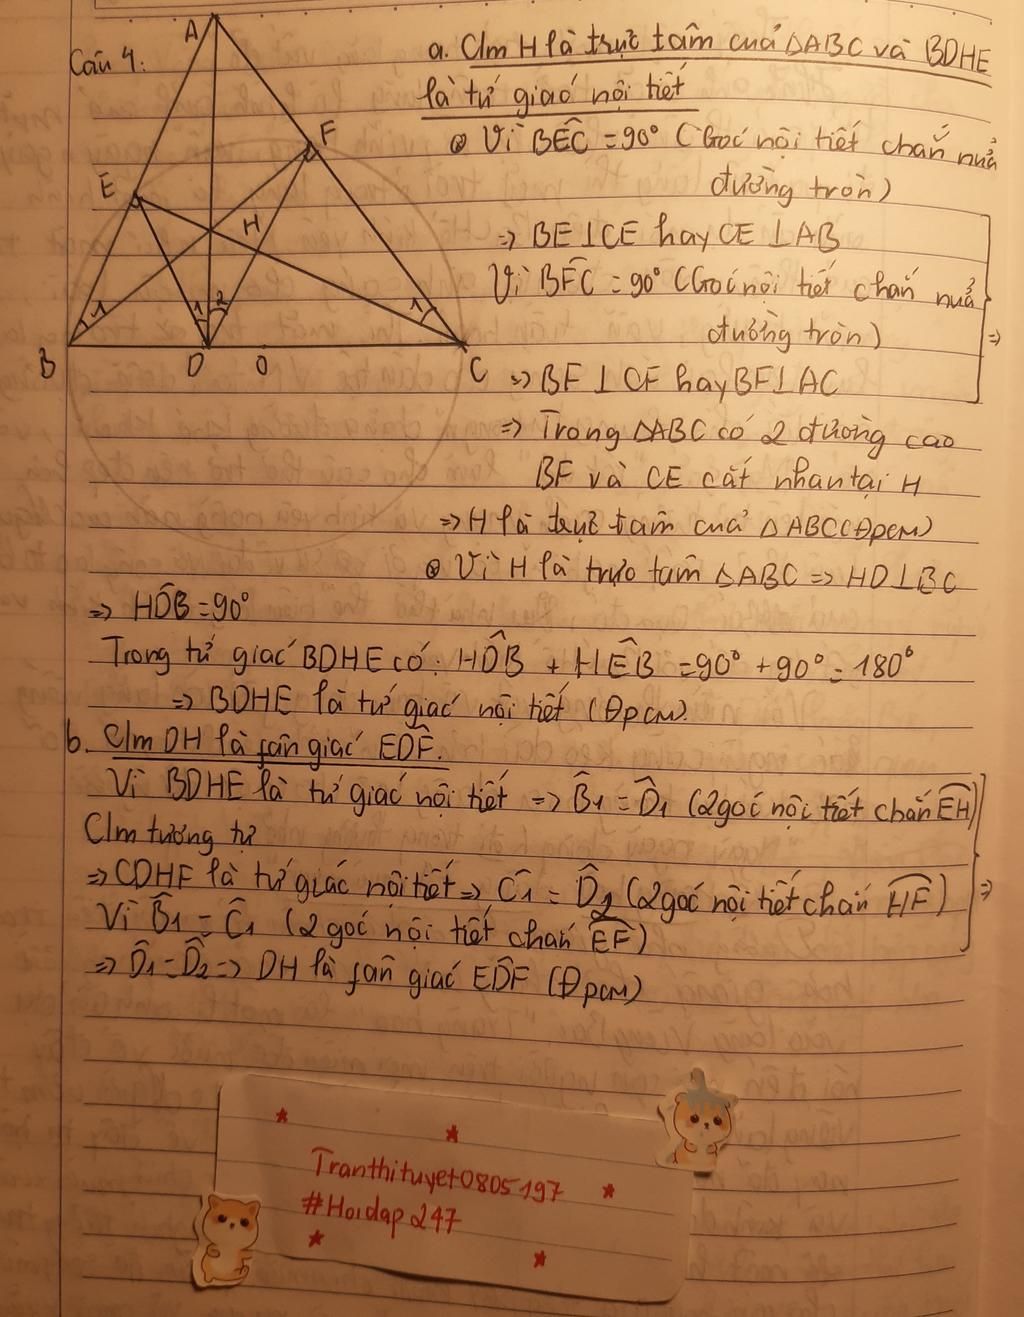 Câu 4:
A
F
E
H
1
1
2
1
B
D
O
C
a. Clm H là trực tâm cuả △ABC và BDHE
là tứ giác nội tiết
Vì BÊC = 90° (Góc nội tiết chắn nuả
đường tròn)
=> BE ⊥ CE hay CE ⊥ AB
Vì BF̂C = 90° (Góc nội tiết chắn nuả
đường tròn)
=>
=> BF ⊥ CF hay BF ⊥ AC
=> Trong △ABC có 2 đường cao
BF và CE cắt nhau tại H
=> H là trực tâm cuả △ABC (Đpcm)
Vì H là trực tâm △ABC => HD ⊥ BC
=> HD̂B = 90°
Trong tứ giác BDHE có: HD̂B + HÊB = 90° + 90° = 180°
=> BDHE là tứ giác nội tiết (Đpcm).
b. Clm DH là fân giác ED̂F.
Vì BDHE là tứ giác nội tiết => B̂1 = D̂1 (2 góc nội tiết chắn EH)
Clm tương tự
=> CDHF là tứ giác nội tiết => Ĉ1 = D̂2 (2 góc nội tiết chắn HF) =>
Vì B̂1 = Ĉ1 (2 góc nội tiết chắn EF)
=> D̂1 = D̂2 => DH là fân giác ED̂F (Đpcm)
Tranthituyet0805197
#Hoidap247